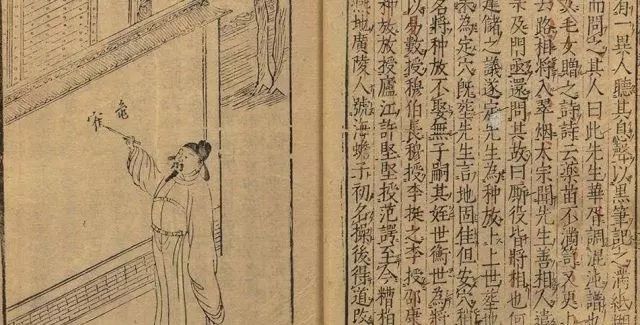 有一異人聽其息聲以黑筆記之滿紙糊
而問之其人曰此先生華胥調混沌譜也
文毛女贈之詩詩云藥苗不滿笥又更上
去路相將入翠烟太宗聞先生善相人遣
及門亟還問其故曰厮役皆將相也何
建儲之議遂定先生為种放上世塟地
矣為定穴既塟先生言地固佳但安穴稍
名將种放不娶無子嗣其姪世衡世為將
以易數授穆伯長穆授李挺之李授邵康
种放放授廬江許堅堅授范諤至云糟粕
燕地廣陵人號海蟾子初名操後得道改
龜
寉